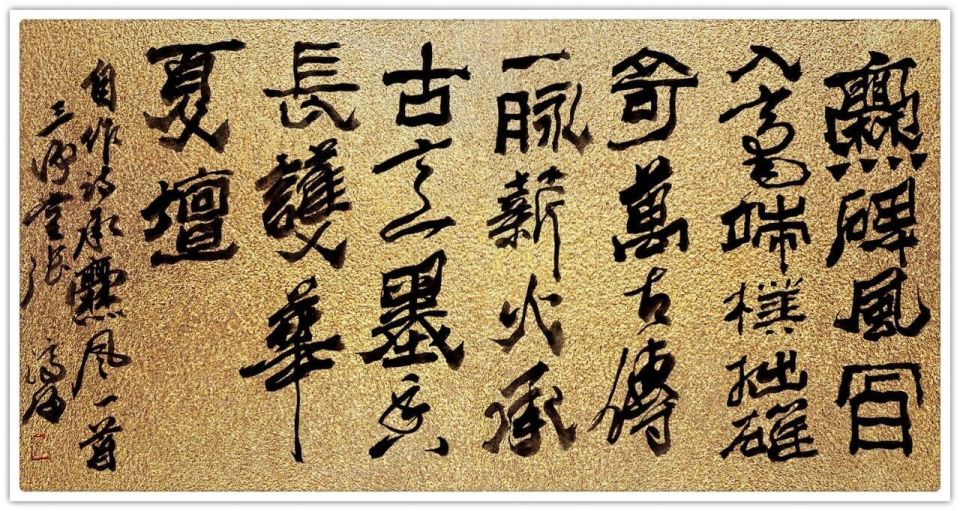 爨碑風骨
入高端樸拙雄
奇萬古傳
一脈薪火承
古意墨香
長護華
夏壇
自作詩承爨風一首
三源堂張